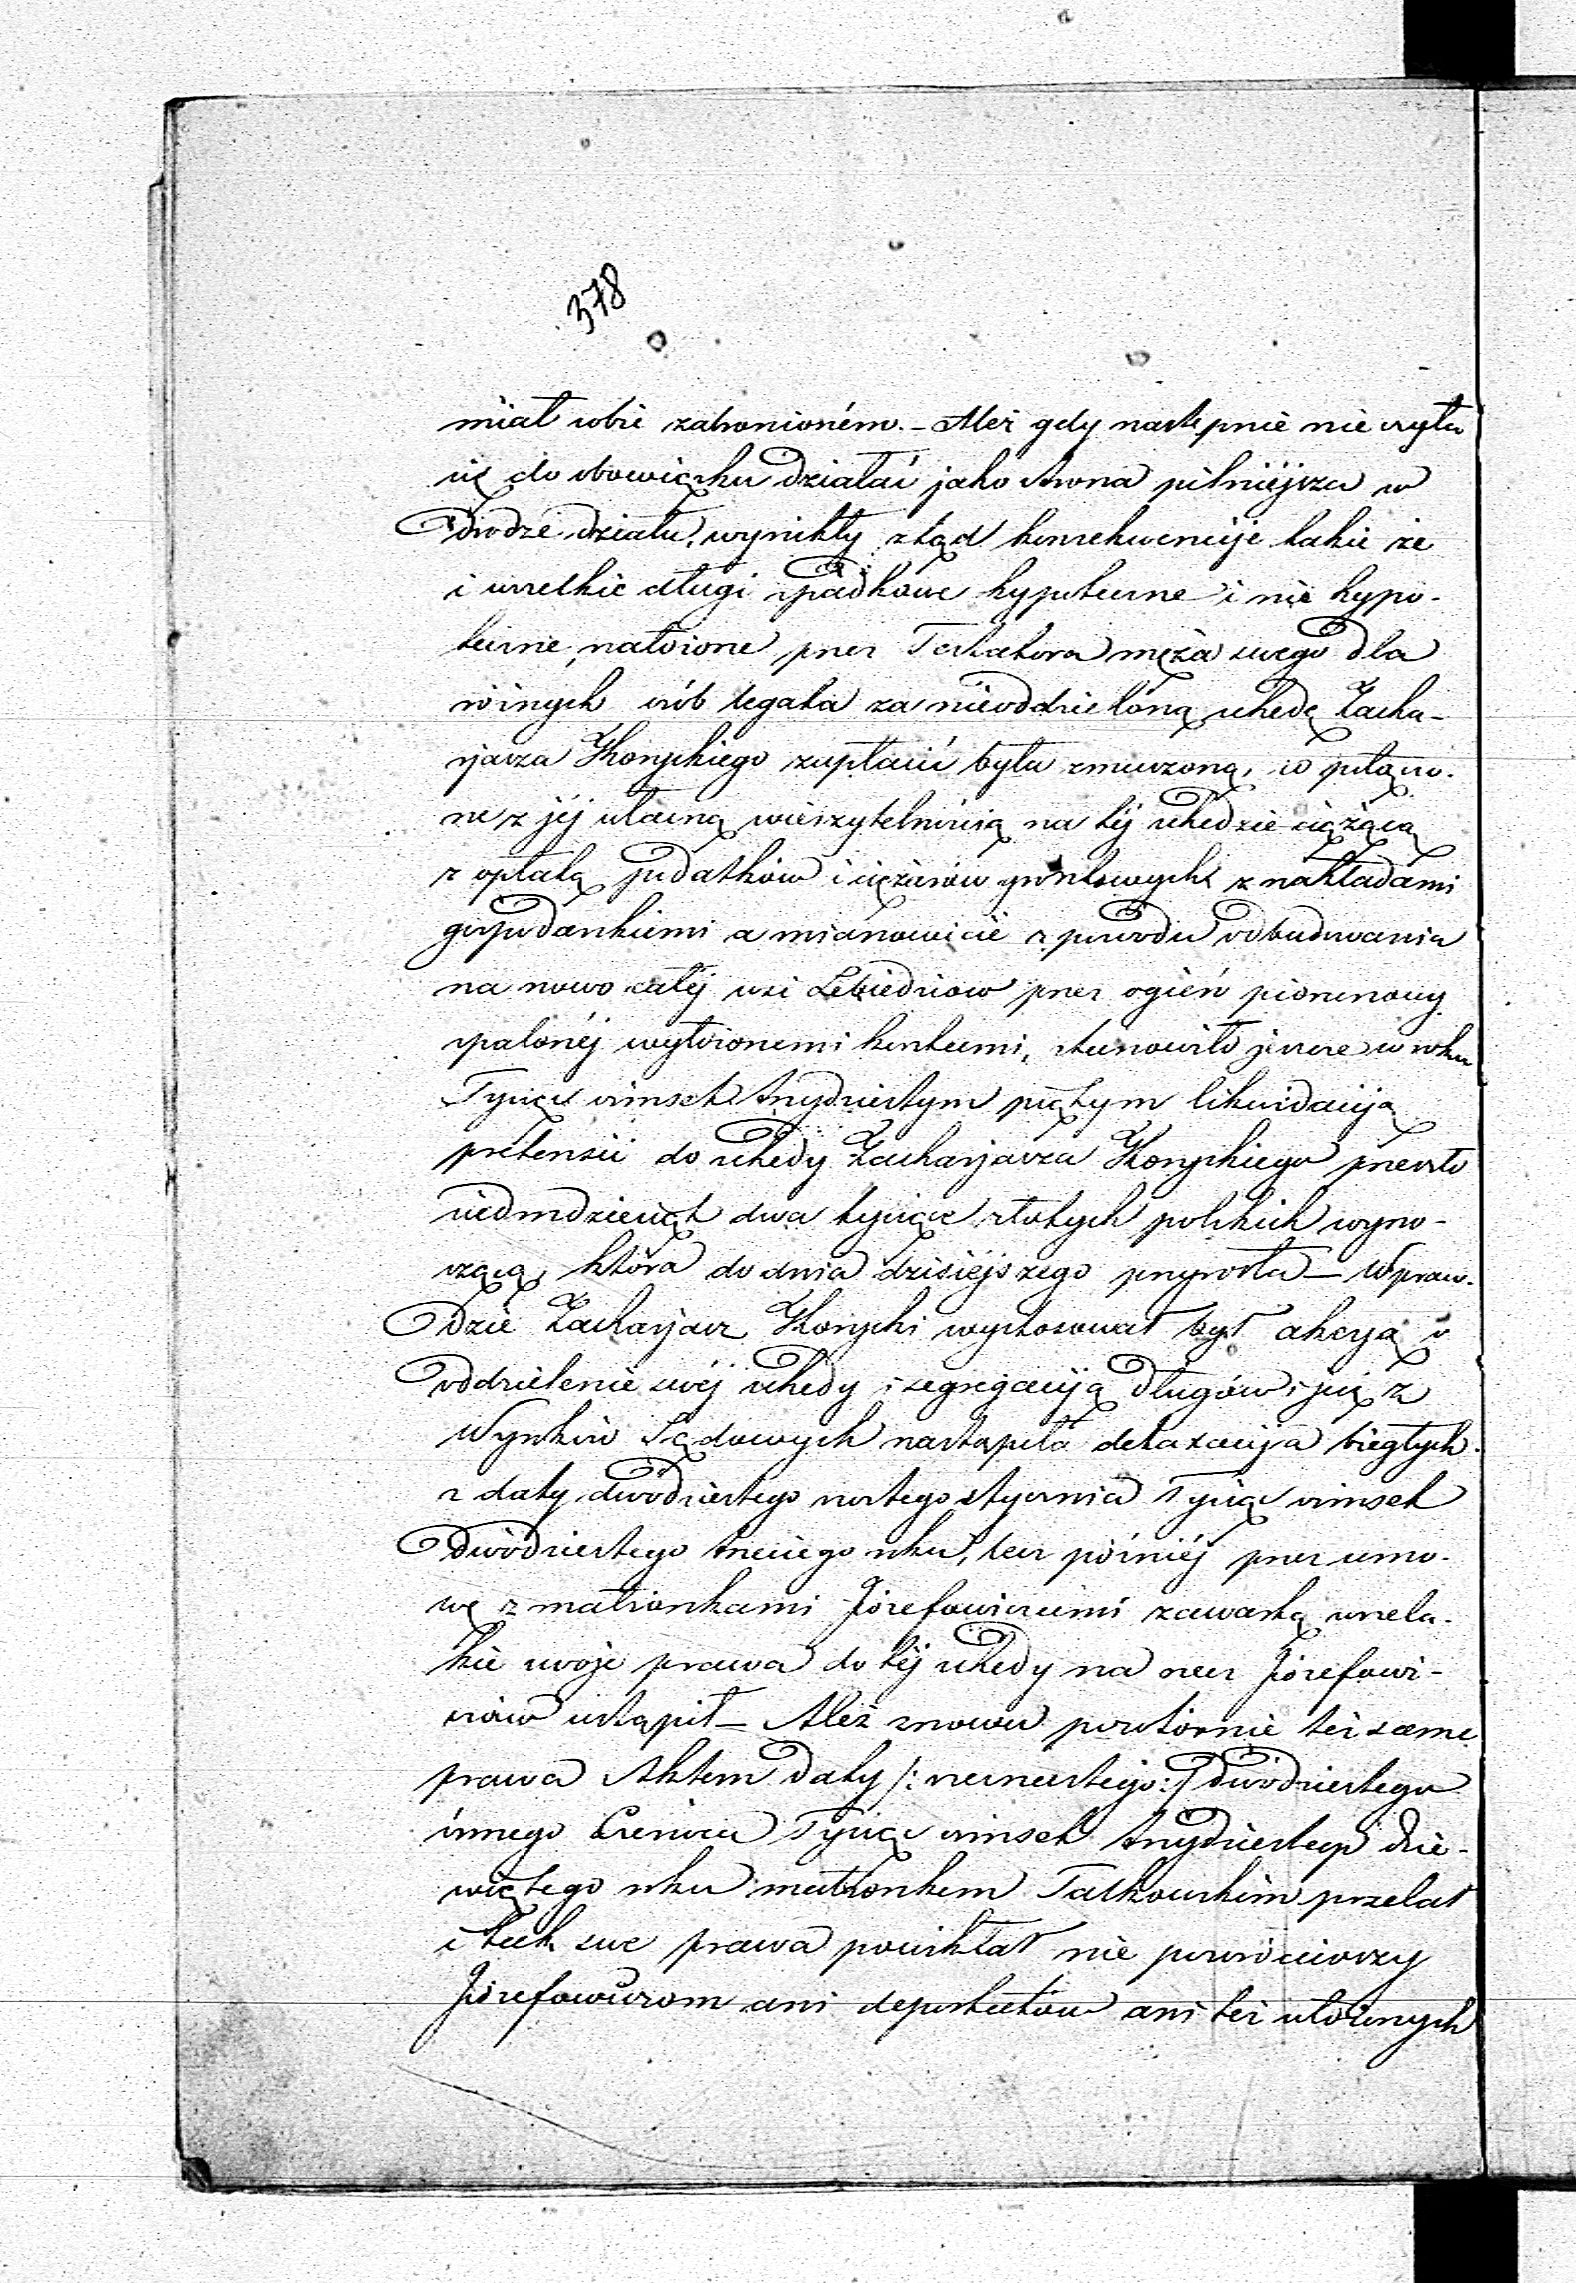 378
miał sobie zabronioném. – Ależ gdy następnie nie czyła
się do obowiązku działać jako strona pilniejsza w
drodze działu, wynikły ztąd konsekwencije takie że
i wszelkie długi spadkowe hypoteczne i nie hypo-
teczne, nałożone przez Testatora męża swego dla
różnych osób legata za nieoddzieloną schedę Zacha-
ryasza Skonyckiego zapłacić była zmuszoną, co połączo-
ne z jéj własną wierzytelnością na téj schedzie ciążącą
z opłatą podatków i ciężarów gruntowych z nakładami
gospodarskiemi a mianowicie z powodu odbudowania
na nowo całéj wsi Lebiedziow przez ogień piorunowy
spalonéj wyłożonemi kosztami, stanowiło jeszcze w roku
Tysiąc ośmset trzydziestym piątym likwidaciją
pretensii do schedy Zacharjasza Skonyckiego przeszło
siedmdziesiąt dwa tysiące złotych polskich wyno-
szącą, która do dnia dzisiejszego przyrosła – Wpraw-
dzie Zacharjasz Skonycki wystosował był akcyą o
oddzielenie swéj schedy i segregaciją długów i już z
Wyroków Sądowych nastąpiła detaxacija biegłych
z daty dwódziestego szóstego stycznia Tysiąc ośmset
dwódziestego trzeciego roku, lecz późniéj przez umo-
wę z małżonkami Józefowiczami zawartą wszela-
kie swoje prawa do téj schedy na rzecz Józefowi-
czów ustąpił – Ależ znowu powtórnie też same
prawa Aktem daty /: szesnastego :/ dwódziestego
ósmego Czerwca Tysiąc ośmset trzydziestego dzie-
wiątego roku małżonkom Tatkowskim przelał
i tak swe prawa powikłał nie powróciwszy
Józefowiczom ani depositów ani też ułożonych